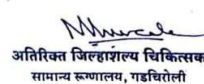 अतिरिक्त जिल्हाशल्य चिकित्सक
सामान्य रूग्णालय, गडचिरोली